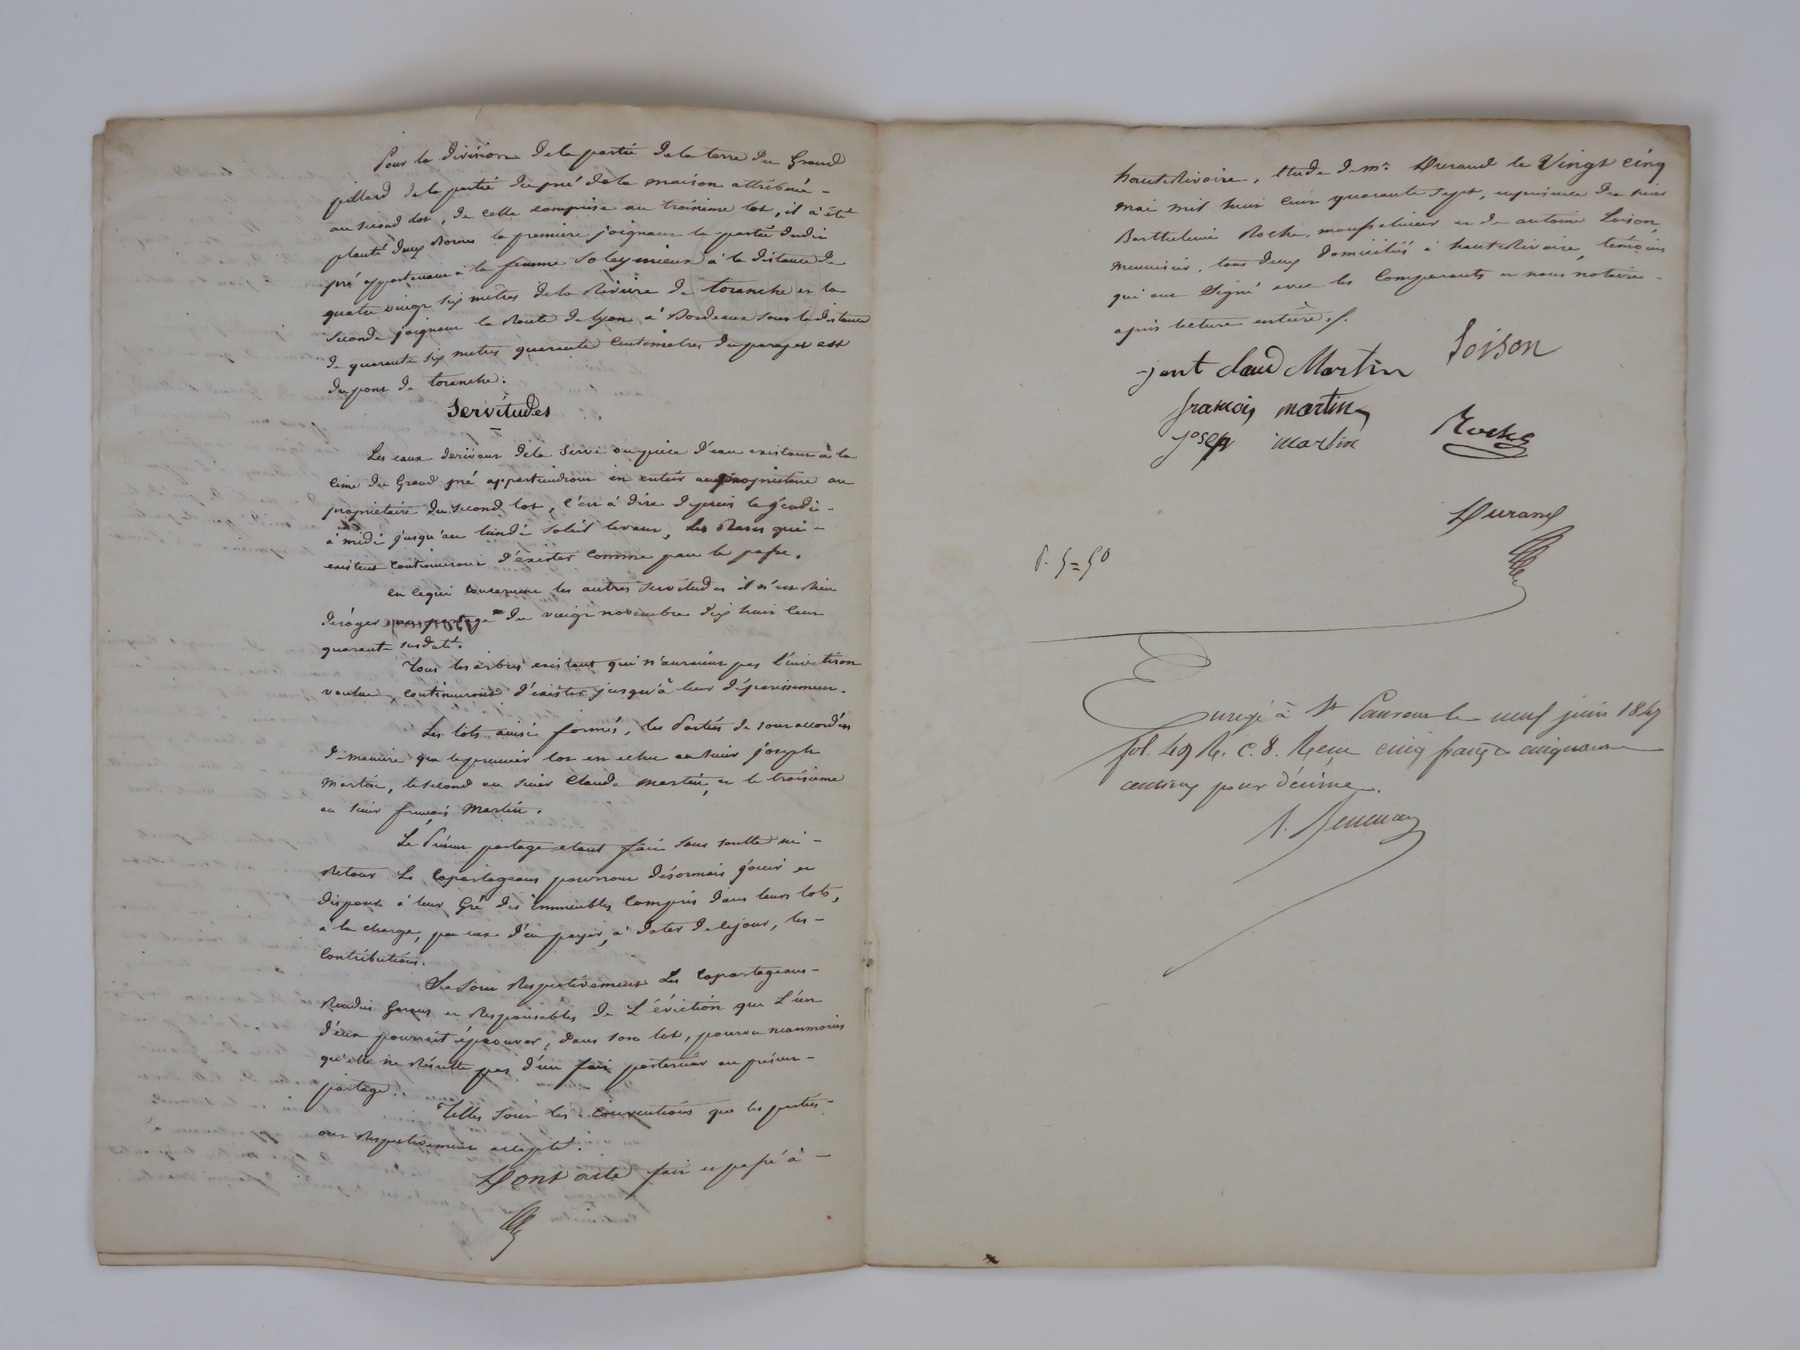 Pour la division de la partie de la terre du Grand
pillard de la partie du pré de la maison attribuée -
au second lot, de celle comprise au troisième lot, il a été
planté deux Bornes la première joignant la partie dudit
pré appartenant à la femme Soleymieux à la distance de
quatre vingt six mètres de la Rivière de toranche et la
seconde joignant la Route de Lyon à Bordeaux sous la distance
de quarante six mètres quarante Centimètres du parapet est
du pont de toranche.
Servitudes
Les eaux derivant de la Serve ou pièce d'eau existant à la
cime du Grand pré appartiendront en entier au propriétaire au
propriétaire du second lot, c'est à dire depuis le jeudi -
à midi jusqu'au lundi soleil levant, les Rases qui -
existent continueront d'exister comme par le passé.
en ce qui concernent les autres servitudes il n'est rien
déroger du vingt novembre dix huit cent
quarante susdaté.
Tous les arbres existant qui n'auraient pas l'invétison
voulue, continueront d'exister jusqu'à leur dépérissement.
Les lots ainsi formés, les Parties se sont accordées
de manière que le premier lot est echu au sieur joseph
Martin, le second au sieur Claude Martin, et le troisième
au sieur françois Martin.
Le Présent partage etant fait sans soulte ni -
Retour Les Copartageans pourront désormais jouir et
disposer à leur Gré des immeubles Compris dans leurs lots,
à la charge, par eux d'en payer, à dater de ce jour, les -
Contributions.
Se sont Respectivement Les Copartageans -
Rendus Garans et Responsables de L'éviction que L'un
d'eux pourrait éprouver, dans son lot, pourvu néanmoins
qu'elle ne Résulte pas d'un fait posterieur au présent -
partage.
Telles sont les conventions que les parties -
ont Respectivement accepté.
Dont acte fait et passé à -
haute Rivoire, Etude de Me Durand le Vingt cinq
mai mil huit cent quarante sept, en présence du sieur
Barthelemi Roche, et de antoine Loison,
Menuisier, tous deux domiciliés à haute Rivoire, témoins
qui ont Signé avec les Comparants et nous notaire -
après lecture entière ./.
jant claud Martin
Loison
françois martin
Roche
joseph martin
Durand
P. 5=50
Enregé à St Laurent le neuf juin 1847
fol. 49 R. C. 8. Reçu cinq francs cinquante
centimes pour décime.